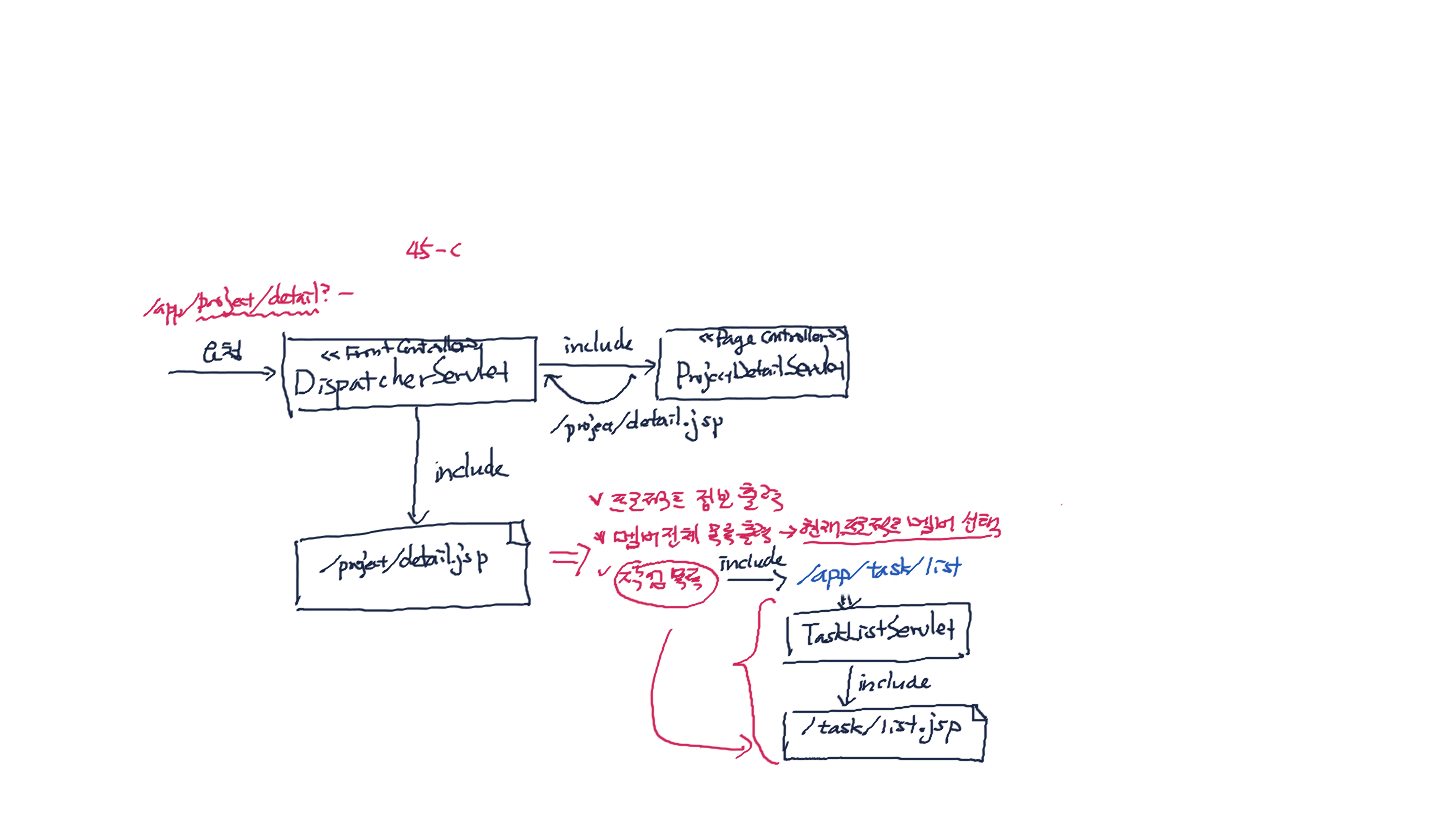 45-c
/app/project/detail? -
요청
<<Front Controller>>
DispatcherServlet
include
<<Page Controller>>
ProjectDetailServlet
/project/detail.jsp
include
/project/detail.jsp
✓ 프로젝트 정보 출력
✓ 멤버전체 목록출력 → 현재 프로젝트 멤버 선택
✓ 작업 목록
include
/app/task/list
TaskListServlet
include
/task/list.jsp